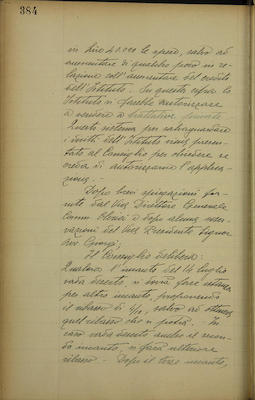 384
in Lire 40.000 le spese, salvo ad
aumentare di qualche poco in re-
lazione coll'aumentare del credito
dell'Istituto. In questo caso lo
Istituto si farebbe autorizzare
a vendere a trattative private.
Questo sistema per salvaguardare
i diritti dell'Istituto viene presen-
tato al Consiglio per ottenere se
creda di autorizzarne l'applica-
zione.-
Dopo brevi spiegazioni for-
nite dal Vice Direttore Generale
Comm. e dopo alcune osser-
vazioni del Vice Presidente Signor
Il Consiglio delibera:
Qualora l'incanto del 14 luglio
vada deserto, si dovrà fare istanza
per altro incanto, proponendo
il ribasso di salvo ad ottenere
quel ribasso che si potrà. - In
caso vada deserto anche il secon-
do incanto, si farà ulteriore
ribasso. - Dopo il terzo incanto,